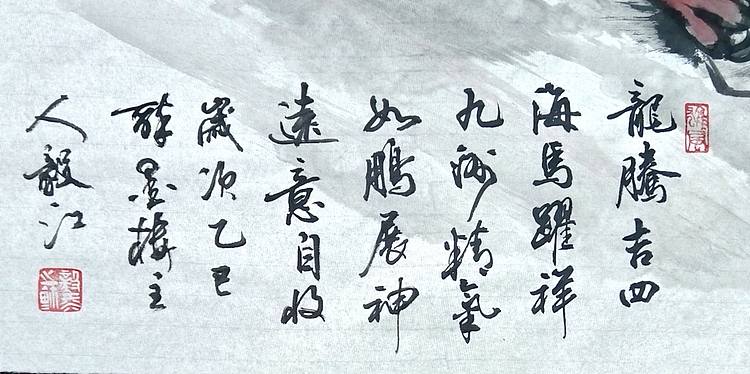 龍騰吉四
海馬躍祥
九洲精氣
如鵬展神
遠意自收
歲次乙巳
醉墨樓主
人毅江